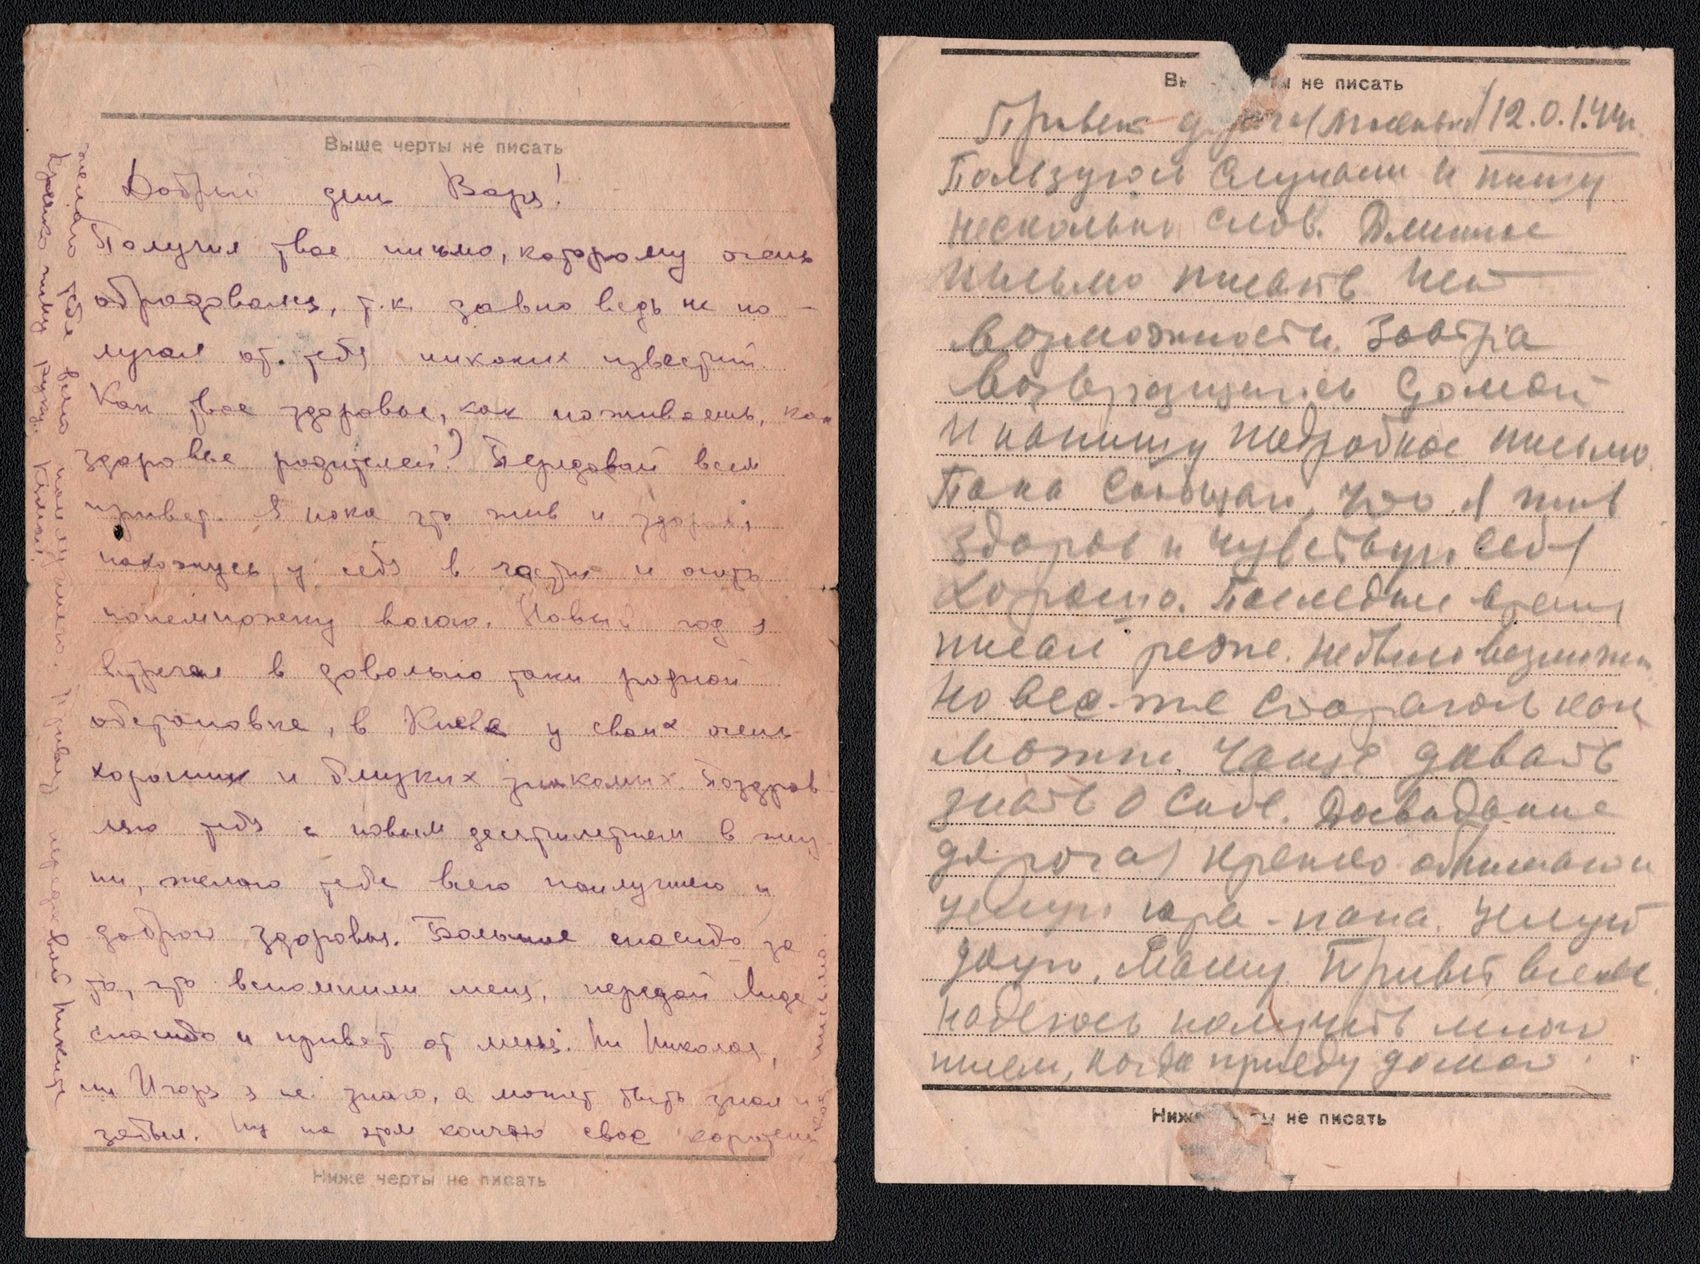 Выше черты не писать
Добрый день Варя!
Получил твое письмо, которому очень
обрадовался, т.к. давно ведь не по-
лучал от тебя никаких известий.
Как твое здоровье, как поживаешь, как
здоровье родителей? Передавай всем
привет. Я пока что жив и здоров,
нахожусь у себя в части и опять
понемножку воюю. Новый год я
встречал в довольно таки родной
обстановке, в Киеве у своих очень
хороших и близких знакомых. Поздрав
ляю тебя с новым десятилетием в жиз
ни, желаю тебе всего наилучшего и
доброго здоровья. Большое спасибо за
то, что вспомнили меня, передай Лиде
спасибо и привет от меня. Ни Николая,
ни Игоря я не знаю, а может быть знал и
забыл. Ну на этом кончаю свое коротень
кое письмо
желаю тебе всего наилучшего. Привет передавай Никите
Крепко жму руку.
Ниже черты не писать
Вы ты не писать
Привет дорогая 12.0.1.44г.
Пользуюсь случаем и пишу
несколько слов. Длинное
письмо писать нет
возможности. Завтра
возвращаюсь домой
и напишу подробное письмо
Пока сообщаю, что я жив
здоров и чувствую себя
хорошо. Последнее время
писал реже. не было возможн
но все-же старался как
можно чаще давать
знать о себе. Досвидание
дорогая крепко обнимаю и
целую юра-папа. Целуй
дочу, Машу. Привет всем.
Надеюсь получить много
писем, когда приеду домой
Ниж ты не писать